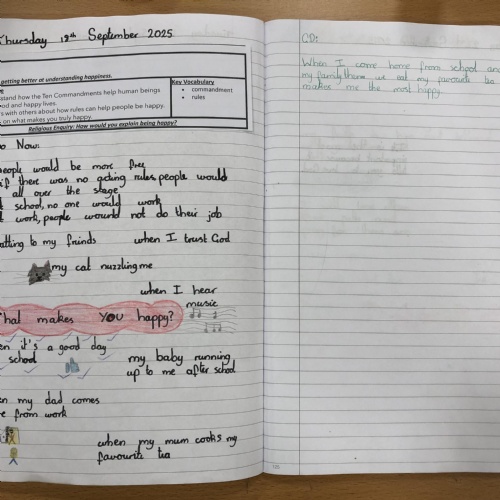 Thursday 18th September 2025
getting better at understanding happiness.
Key Vocabulary
commandment
rules
stand how the Ten Commandments help human beings
ood and happy lives.
s with others about how rules can help people be happy.
on what makes you truly happy.
Religious Enquiry: How would you explain being happy?
o Now:
people would be more free
if there was no acting rules, people would
all over the stage
school, no one would work
work, people would not do their job
atting to my friends
when I trust God
my cat nuzzling me
when I hear
music
hat makes YOU happy?
en it's a good day
school
my baby running
up to me after school
en my dad comes
e from work
when my mum cooks my
favourite tea
GD:
When I come home from school and
my family there we eat my favourite tea
makes me the most happy